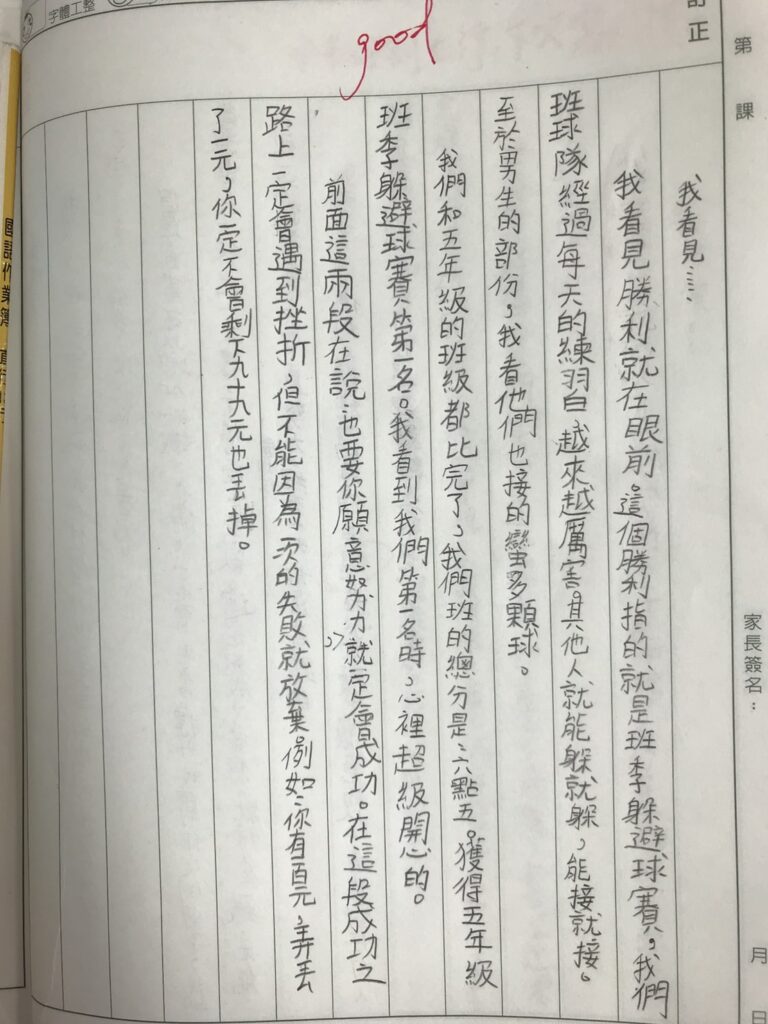 字體工整
訂正
第 課
家長簽名：
月 日
good
我看見……
我看見勝利就在眼前。這個勝利指的就是班季躲避球賽，我們
班球隊經過每天的練習，越來越厲害。其他人就能躲就躲，能接就接。
至於男生的部份，我看他們也接的蠻多顆球。
我們和五年級的班級都比完了，我們班的總分是：六點五。獲得五年級
班季躲避球賽第一名。我看到我們第一名時，心裡超級開心的。
前面這兩段在說：也要你願意努力，就一定會成功。在這段成功之
路上一定會遇到挫折，但不能因為一次的失敗就放棄。例如：你有百元，弄丟
了一元，你一定不會剩下九十九元也丟掉。
國語作業簿